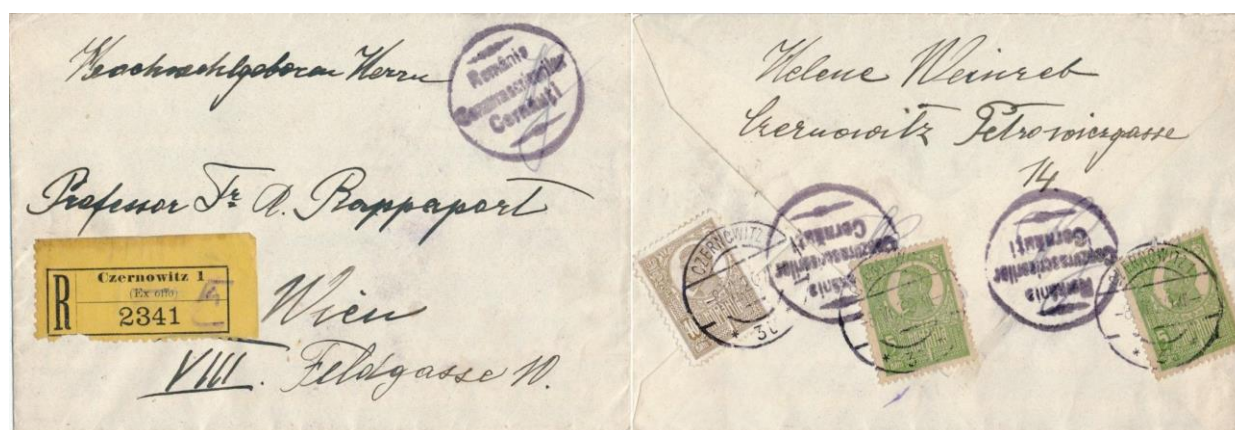 Hochwohlgeboren Herrn
România
Cenzurascrierilor
Cernăuţi
Professor Dr A. Rappaport
R
Czernowitz 1
(Ex offo)
2341
Wien
VIII. Feldgasse 10.
Helene Weinreb
Czernowitz Petrowiczgasse
14.
România
Cenzurascrierilor
Cernăuţi
România
Cenzurascrierilor
Cernăuţi
CZERNOWITZ